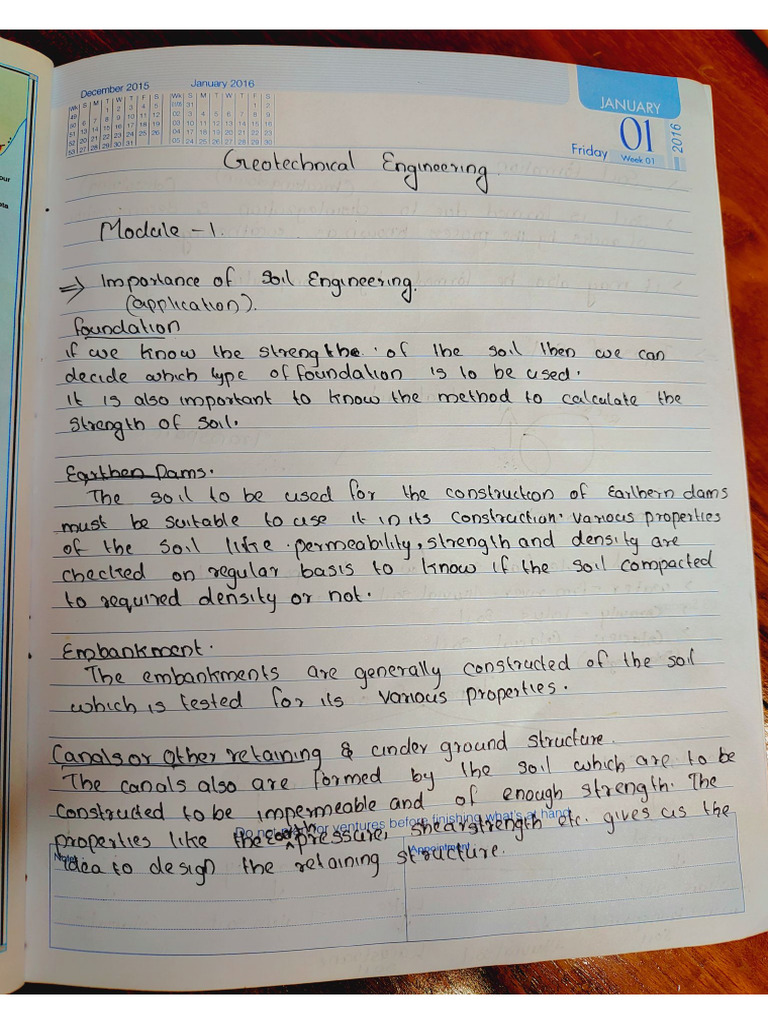 December 2015
January 2016
Wk S M T W T F S
49 1 2 3 4 5
50 6 7 8 9 10 11 12
51 13 14 15 16 17 18 19
52 20 21 22 23 24 25 26
53 27 28 29 30 31
Wk S M T W T F S
01/06 31 1 2
02 3 4 5 6 7 8 9
03 10 11 12 13 14 15 16
04 17 18 19 20 21 22 23
05 24 25 26 27 28 29 30
JANUARY
01
2016
Friday
Week 01
Geotechnical Engineering.
Module - 1.
⇒ Importance of Soil Engineering.
(application).
foundation
if we know the strengthe. of the soil then we can
decide which type of foundation is to be used.
it is also important to know the method to calculate the
strength of soil.
Earthen Dams.
The soil to be used for the construction of Earthern dams
must be suitable to use it in its construction. various properties
of the soil like permeability, strength and density are
checked on regular basis to know if the soil compacted
to required density or not.
Embankment.
The embankments are generally constructed of the soil
which is tested for its various properties.
Canals or Other retaining & under ground structure.
The canals also are formed by the soil which are to be
constructed to be impermeable and of enough strength. The
properties like the earth pressure, shear strength etc. gives us the
idea to design the retaining structure.
Do not plan or ventures before finishing what's at hand
Notes
Appointment